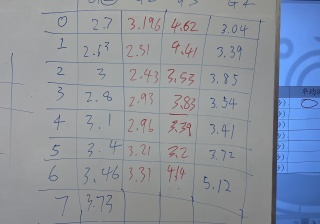 0 2.7 3.196 4.62 3.04
1 2.53 2.51 9.41 3.39
2 3 2.43 3.53 3.85
3 2.8 2.93 3.83 3.54
4 3.1 2.96 3.39 3.41
5 3.4 3.21 3.2 3.72
6 3.46 3.31 5.12
7 3.73